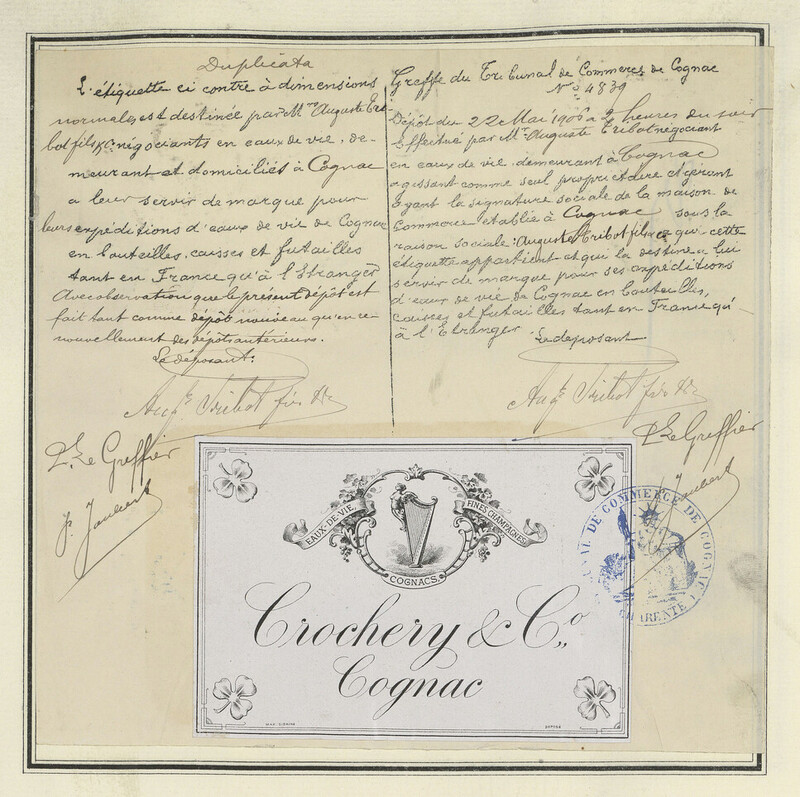 Duplicata
L'étiquette ci contre à dimensions
normales est destinée par Mrs Auguste Tri-
bot fils & Co négociants en eaux de vie, de-
meurant et domiciliés à Cognac
a leur servir de marque pour
leurs expéditions d'eaux de vie de Cognac
en bouteilles, caisses et futailles
tant en France qu'à l'Etranger
Avec observation que le présent dépôt est
fait tant comme dépôt nouveau qu'en re-
nouvellement des dépôts antérieurs.
Le déposant:
Augte Tribot fils & Co
Pr Le Greffier
J. Joubert
Greffe du Tribunal de Commerce de Cognac
No 4839
Dépôt du 22 Mai 1906 à heures du soir
Effectué par Mr Auguste Tribot négociant
en eaux de vie demeurant à Cognac
agissant comme seul propriétaire et gérant
ayant la signature sociale de la maison de
Commerce établie à Cognac sous la
raison sociale: Auguste Tribot fils & Co qui cette
étiquette appartient et qui la destine a lui
servir de marque pour ses expéditions
d'eaux de vie de Cognac en bouteilles,
caisses et futailles tant en France qu'-
à l'Etranger
Le déposant
Augte Tribot fils & Co
Pr Le Greffier
Joubert
EAUX-DE-VIE
FINES CHAMPAGNES
COGNACS
Crochery & Co,,
Cognac
DÉPOSÉ
TRIBUNAL DE COMMERCE DE COGNAC
CHARENTE